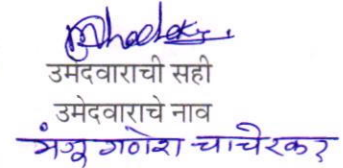 उमेदवाराची सही
उमेदवाराचे नाव
मंजू गणेश चाचेरकर